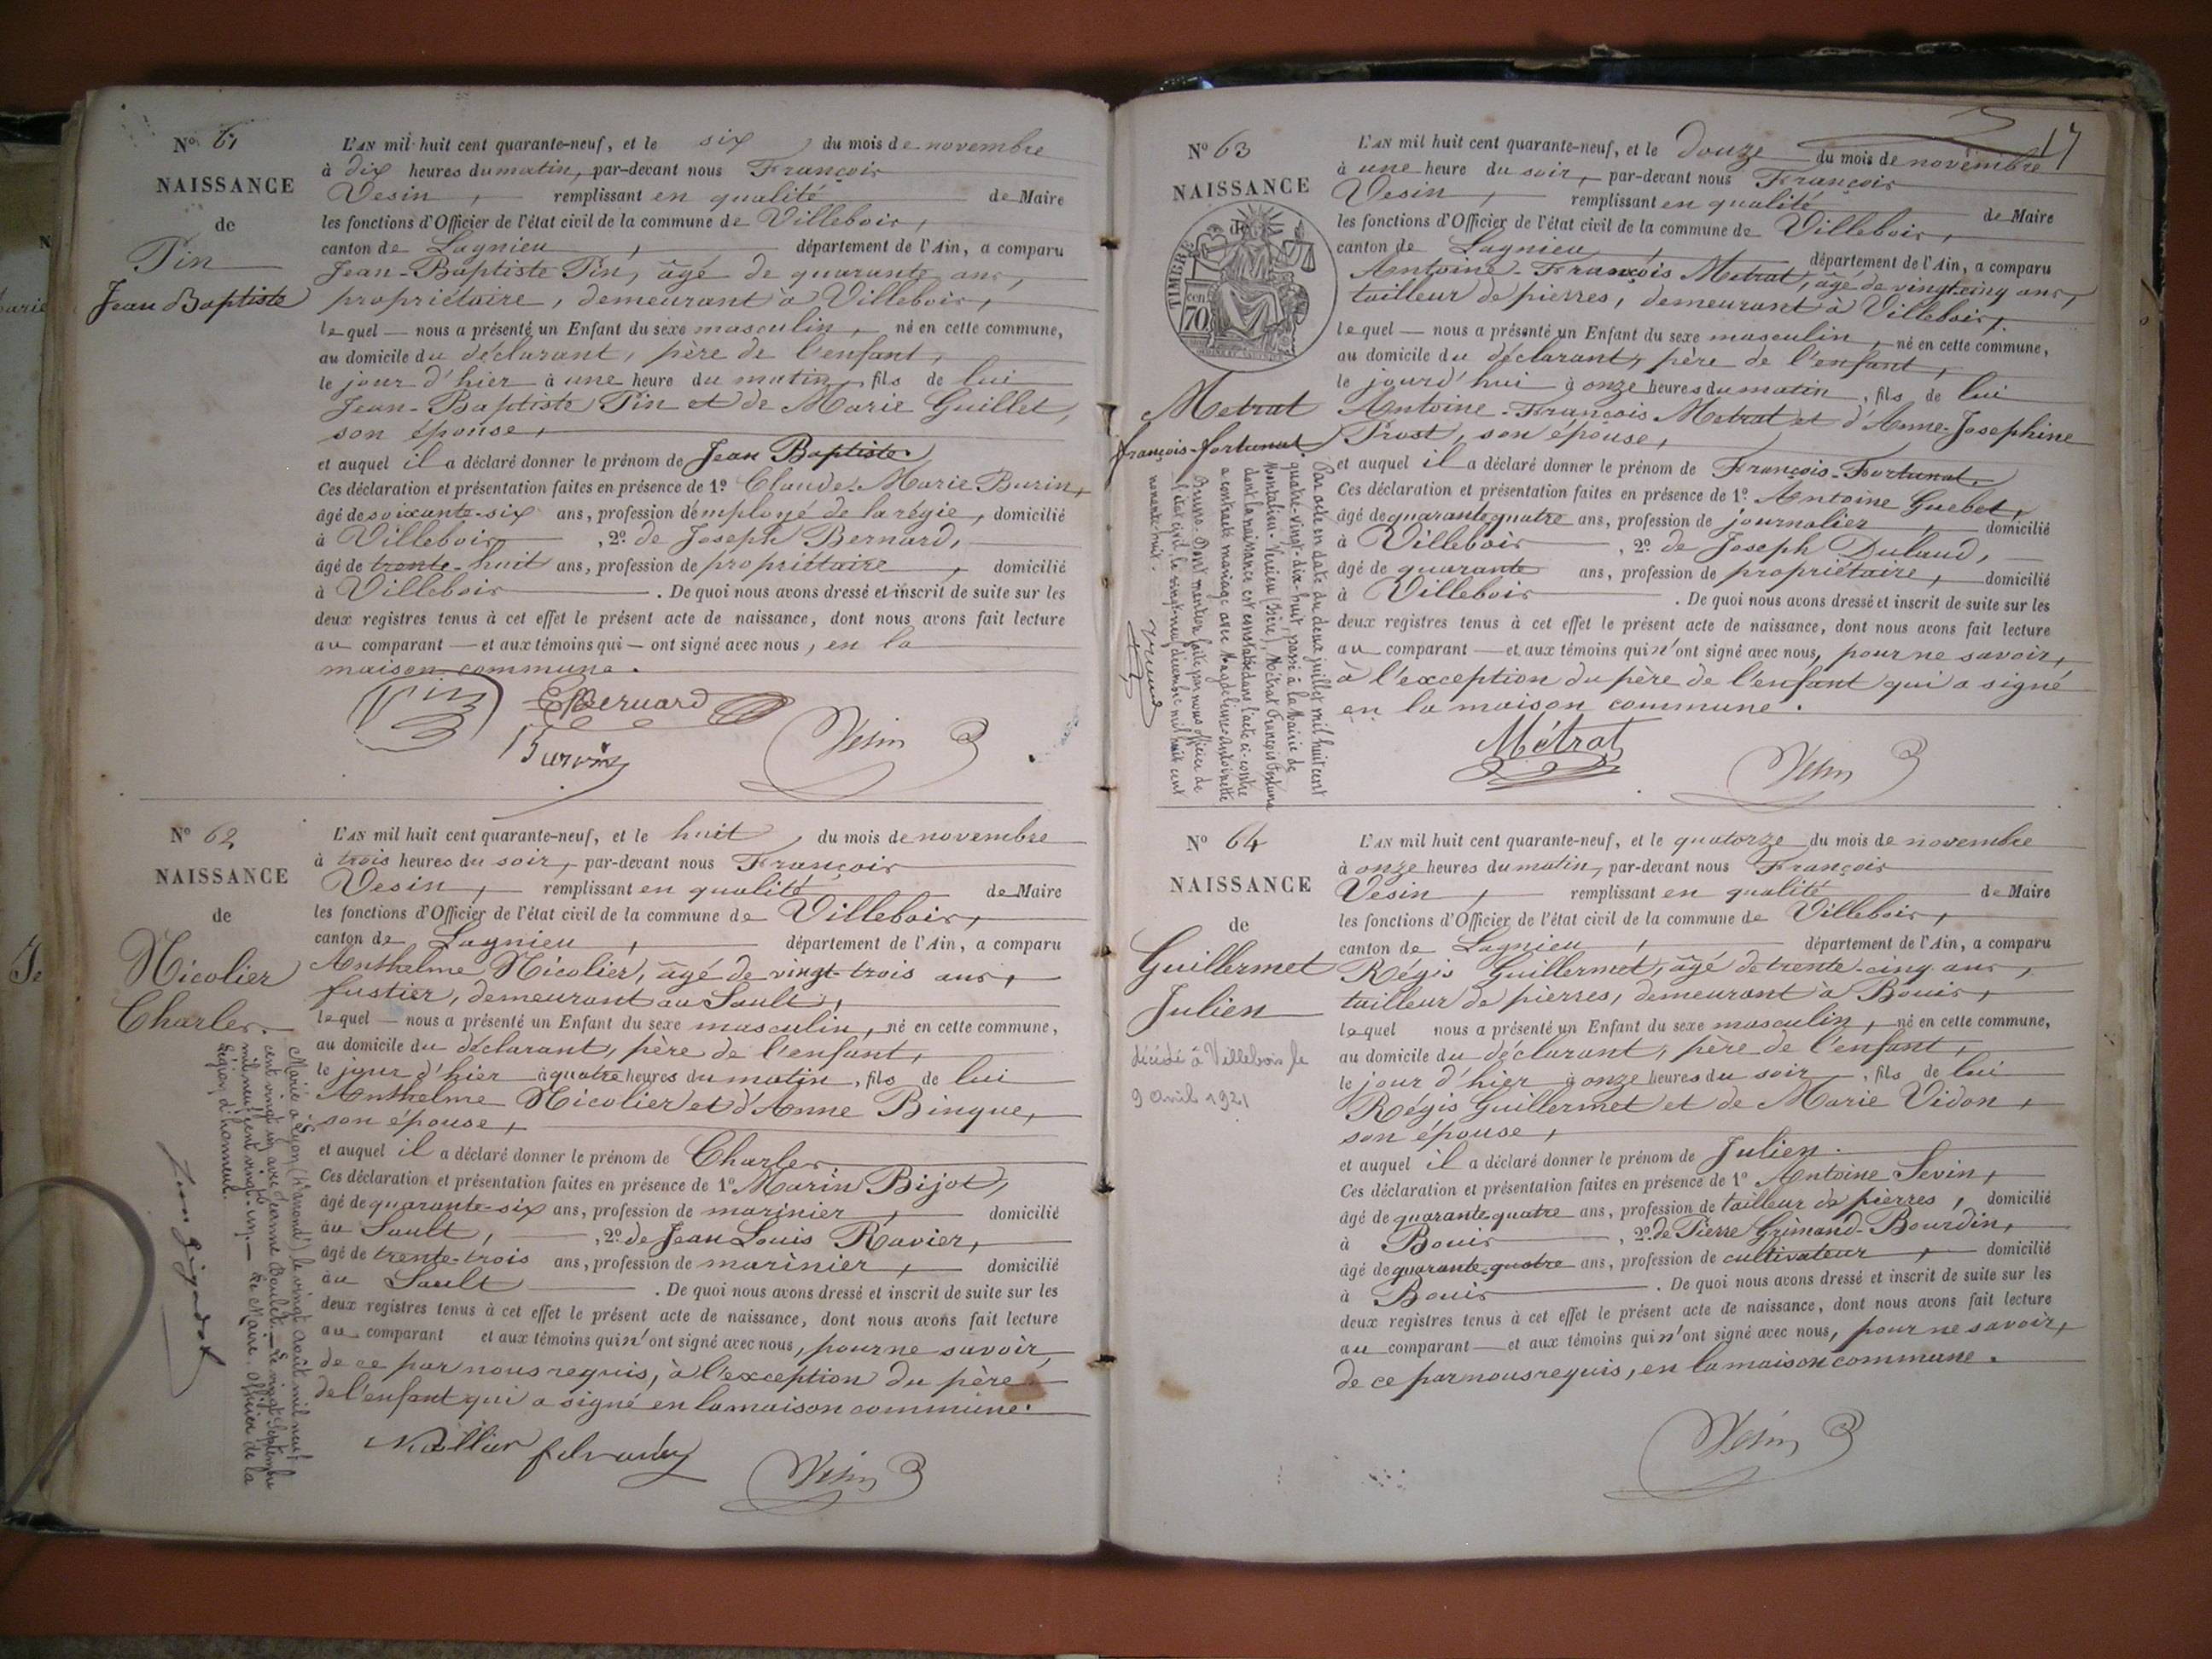 Nº 61
NAISSANCE
de
Pin
Jean Baptiste
L'AN mil huit cent quarante-neuf, et le six, du mois de novembre
à dix heures du matin, par-devant nous François
Vesin, remplissant en qualité de Maire
les fonctions d'Officier de l'état civil de la commune de Villebois,
canton de Lagnieu, département de l'Ain, a comparu
Jean-Baptiste Pin, âgé de quarante ans,
propriétaire, demeurant à Villebois,
lequel — nous a présenté un Enfant du sexe masculin, né en cette commune,
au domicile du déclarant, père de l'enfant,
le jour d'hier à une heure du matin, fils de lui
Jean-Baptiste Pin et de Marie Guillet,
son épouse,
et auquel il a déclaré donner le prénom de Jean Baptiste.
Ces déclaration et présentation faites en présence de 1º Claude-Marie Burin,
âgé de soixante-six ans, profession d'employé de la régie, domicilié
à Villebois, 2º de Joseph Bernard,
âgé de trente-huit ans, profession de propriétaire, domicilié
à Villebois. De quoi nous avons dressé et inscrit de suite sur les
deux registres tenus à cet effet le présent acte de naissance, dont nous avons fait lecture
au comparant — et aux témoins qui — ont signé avec nous, en la
maison commune.
Pin Bernard
Burin Vesin
Nº 62
NAISSANCE
de
Nicolier
Charles.
L'AN mil huit cent quarante-neuf, et le huit, du mois de novembre
à trois heures du soir, par-devant nous François
Vesin, remplissant en qualité de Maire
les fonctions d'Officier de l'état civil de la commune de Villebois,
canton de Lagnieu, département de l'Ain, a comparu
Anthelme Nicolier, âgé de vingt-trois ans,
fustier, demeurant au Sault,
lequel — nous a présenté un Enfant du sexe masculin, né en cette commune,
au domicile du déclarant, père de l'enfant,
le jour d'hier à quatre heures du matin, fils de lui
Anthelme Nicolier et d'Anne Binque,
son épouse,
et auquel il a déclaré donner le prénom de Charles.
Ces déclaration et présentation faites en présence de 1º Marin Bijot,
âgé de quarante-six ans, profession de marinier, domicilié
au Sault, 2º de Jean Louis Ravier,
âgé de trente-trois ans, profession de marinier, domicilié
au Sault. De quoi nous avons dressé et inscrit de suite sur les
deux registres tenus à cet effet le présent acte de naissance, dont nous avons fait lecture
au comparant et aux témoins qui n'ont signé avec nous, pour ne savoir,
de ce par nous requis, à l'exception du père
de l'enfant qui a signé en la maison commune.
Vesin
Marié à Lyon (4e arrondt) le vingt août mil neuf
cent vingt un avec Jeanne Baulet. — Le vingt Septembre
mil neuf cent vingt-un. — Le Maire, Officier de la
Légion d'honneur.
Nº 63
17
NAISSANCE
de
TIMBRE
70 cen
Metrat
françois-fortunat
L'AN mil huit cent quarante-neuf, et le douze du mois de novembre
à une heure du soir, par-devant nous François
Vesin, remplissant en qualité de Maire
les fonctions d'Officier de l'état civil de la commune de Villebois,
canton de Lagnieu, département de l'Ain, a comparu
Antoine-François Metrat, âgé de vingt-cinq ans,
tailleur de pierres, demeurant à Villebois,
lequel — nous a présenté un Enfant du sexe masculin, né en cette commune,
au domicile du déclarant, père de l'enfant,
le jourd'hui à onze heures du matin, fils de lui
Antoine-François Metrat et d'Anne-Josephine
Prost, son épouse,
et auquel il a déclaré donner le prénom de François-Fortunat.
Ces déclaration et présentation faites en présence de 1º Antoine Guebet,
âgé de quarante quatre ans, profession de journalier, domicilié
à Villebois, 2º de Joseph Dulaud,
âgé de quarante ans, profession de propriétaire, domicilié
à Villebois. De quoi nous avons dressé et inscrit de suite sur les
deux registres tenus à cet effet le présent acte de naissance, dont nous avons fait lecture
au comparant — et aux témoins qui n'ont signé avec nous, pour ne savoir,
à l'exception du père de l'enfant qui a signé
en la maison commune.
Métrat Vesin
Par acte en date du deux juillet mil huit cent
quatre-vingt-dix-huit passé à la Mairie de
Montalieu-Vercieu (Isère), Métrat François Fortuna
dont la naissance est constatée dans l'acte ci-contre
a contracté mariage avec Magdeleine Antoinette
Dont mention faite par nous officier de
l'état civil le vingt-neuf décembre mil huit cent
nonante-huit.
Nº 64
NAISSANCE
de
Guillermet
Julien
décédé à Villebois le
9 avril 1921
L'AN mil huit cent quarante-neuf, et le quatorze du mois de novembre
à onze heures du matin, par-devant nous François
Vesin, remplissant en qualité de Maire
les fonctions d'Officier de l'état civil de la commune de Villebois,
canton de Lagnieu, département de l'Ain, a comparu
Régis Guillermet, âgé de trente-cinq ans,
tailleur de pierres, demeurant à Bouis,
lequel nous a présenté un Enfant du sexe masculin, né en cette commune,
au domicile du déclarant, père de l'enfant,
le jour d'hier à onze heures du soir, fils de lui
Régis Guillermet et de Marie Vidon,
son épouse,
et auquel il a déclaré donner le prénom de Julien.
Ces déclaration et présentation faites en présence de 1º Antoine Sevin,
âgé de quarante quatre ans, profession de tailleur de pierres, domicilié
à Bouis, 2º de Pierre Grimand-Bourdin,
âgé de quarante quatre ans, profession de cultivateur, domicilié
à Bouis. De quoi nous avons dressé et inscrit de suite sur les
deux registres tenus à cet effet le présent acte de naissance, dont nous avons fait lecture
au comparant — et aux témoins qui n'ont signé avec nous, pour ne savoir,
de ce par nous requis, en la maison commune.
Vesin